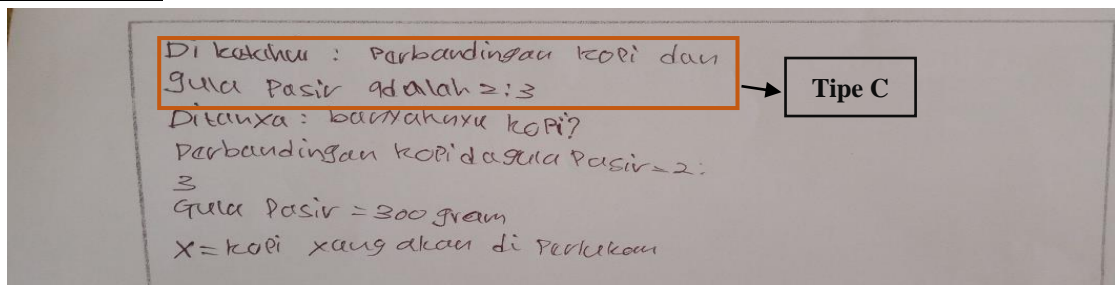 Diketahui : Parbandingan kopi dan
gula Pasir adalah 2:3
Tipe C
Ditanya : banyaknya kopi?
Parbandingan kopi da gula Pasir = 2:
3
Gula Pasir = 300 gram
X = kopi yang akan di Perlukan